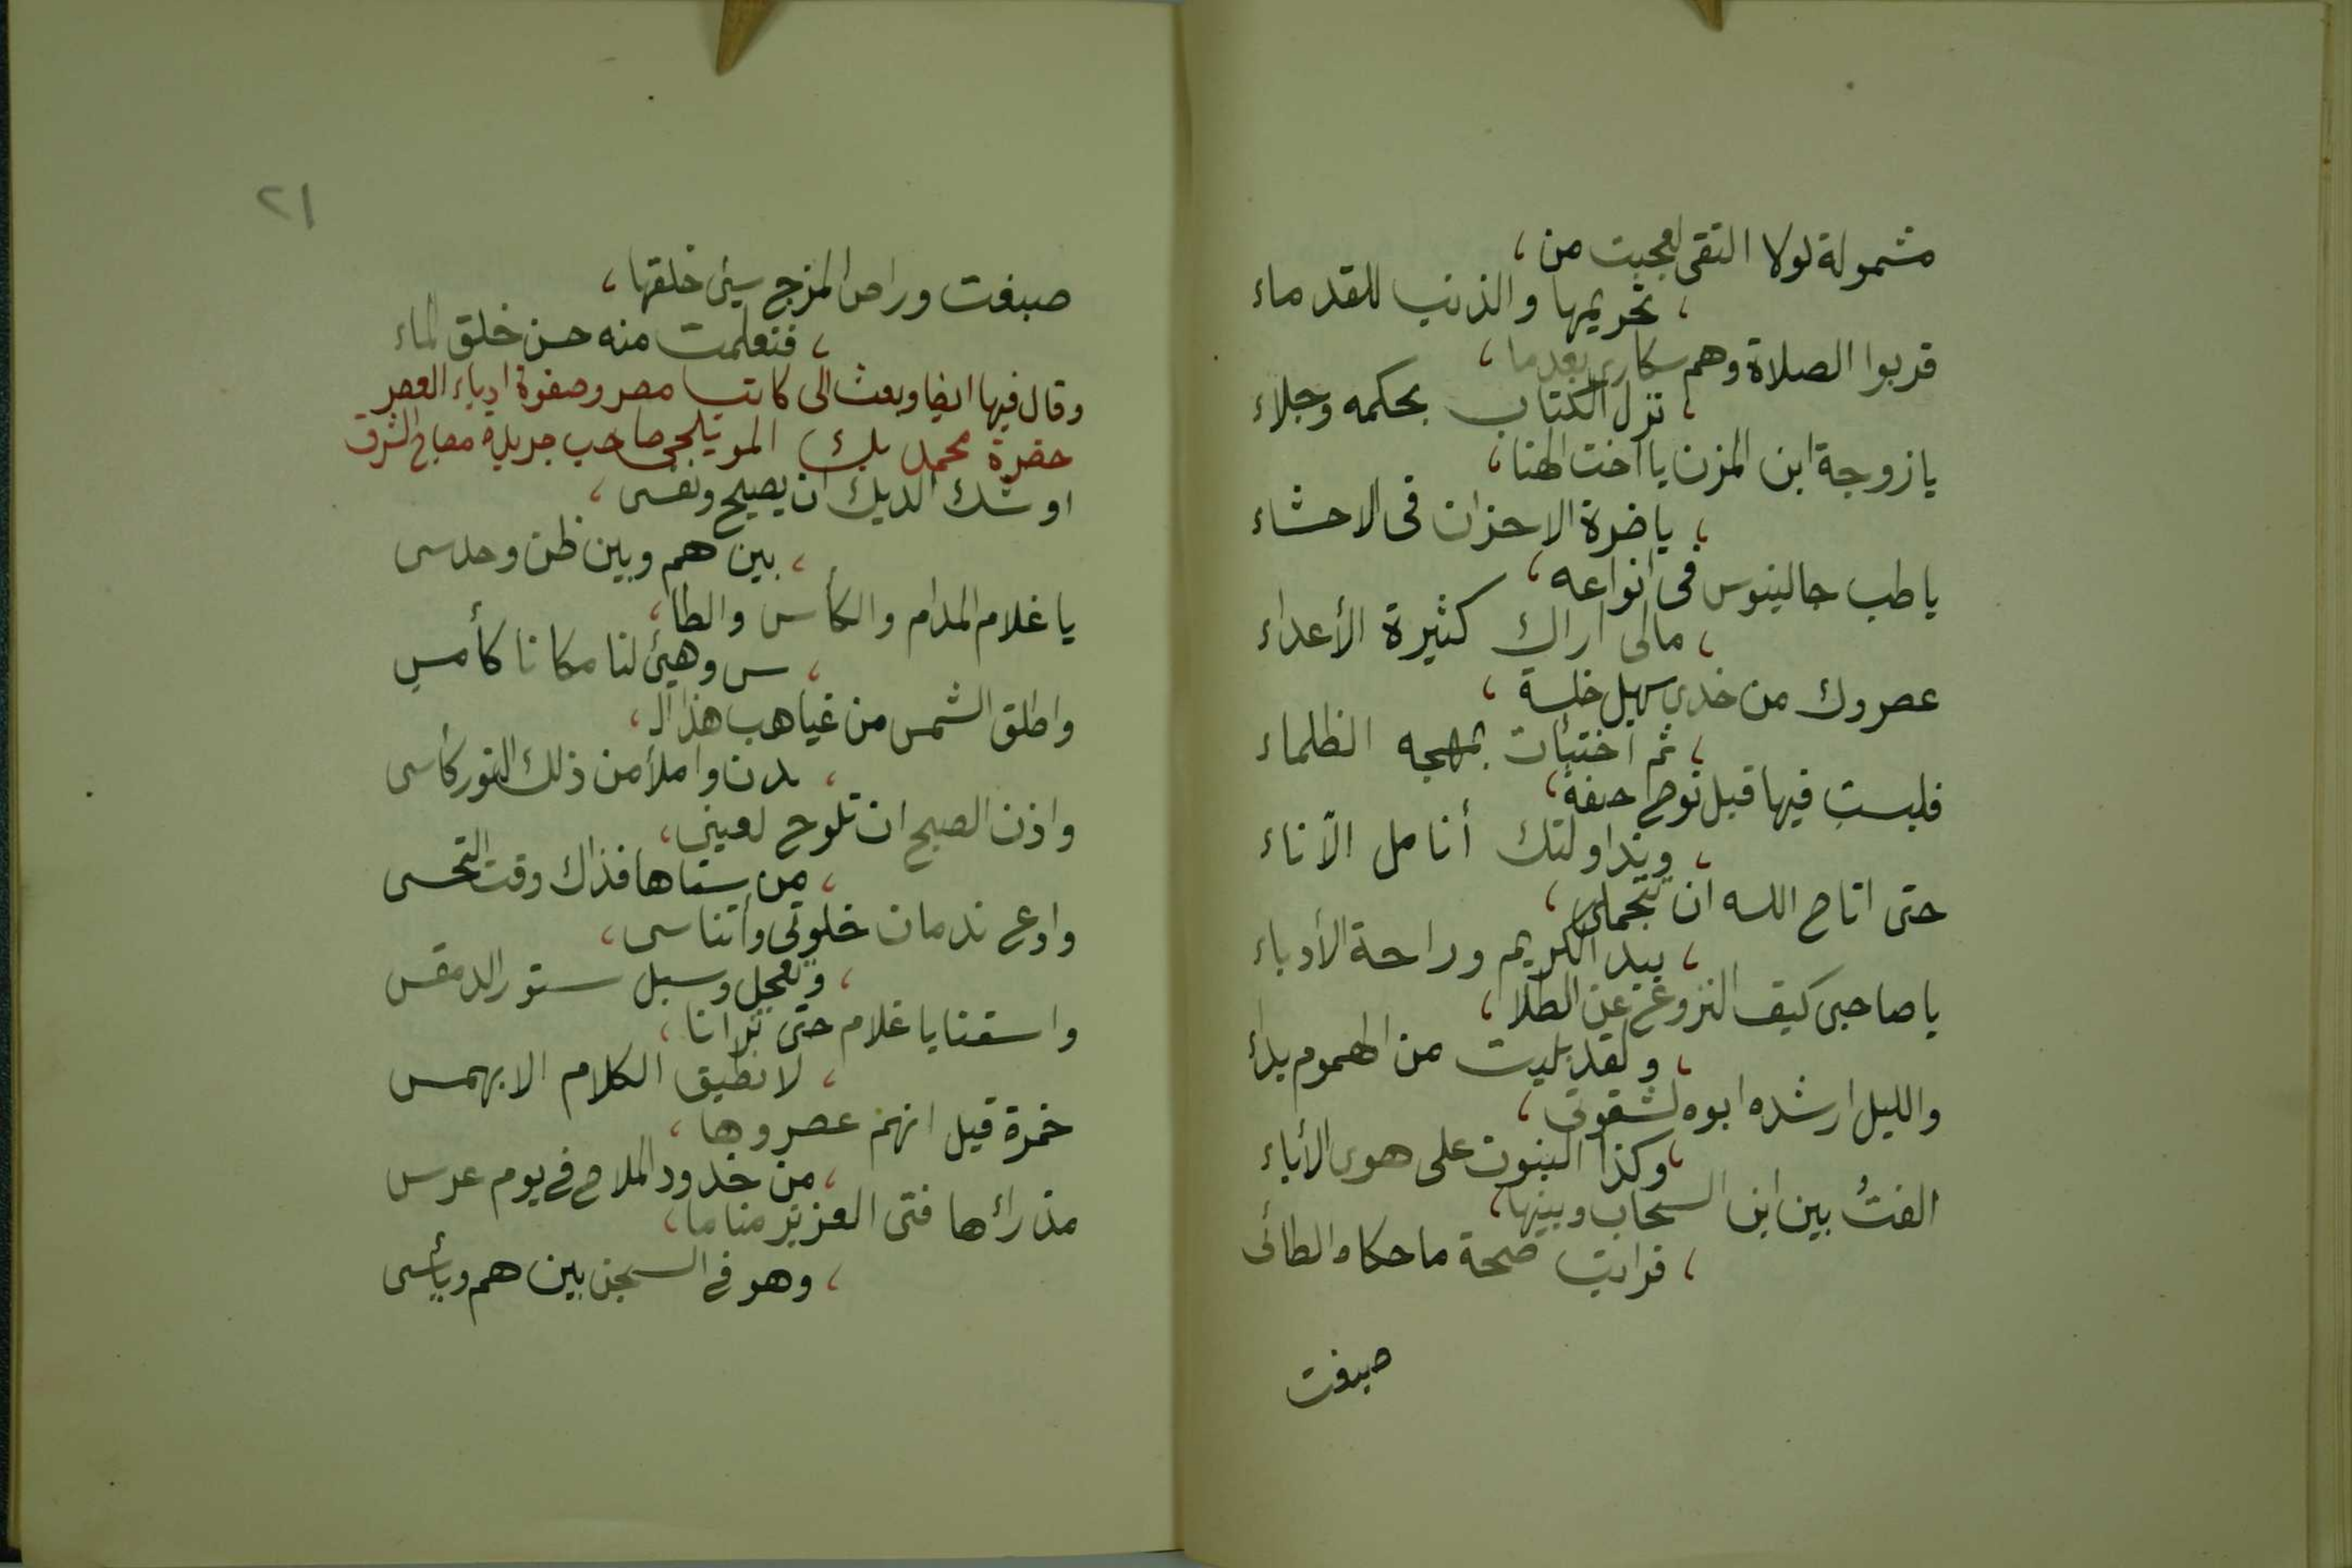 مشمولة لولا التقى لعجبت من ،
، تحريمها والذنب للقدماء
قربوا الصلاة وهم سكارى بعدما ،
، نزل الكتاب بحكمه وجلاء
يا زوجة ابن المزن يا اخت الهنا ،
، يا ضرة الاحزان فى الاحشاء
يا طب جالينوس فى انواعه ،
، مالى اراك كثيرة الأعداء
عصروك من خدى سهيل خلسة ،
، ثم اختبأت بمهجه الظلماء
فلبست فيها قبل نوح احقبة ،
، وتداولتك أنامل الآناء
حتى اتاح الله ان تتجملى ،
، بيد الكريم وراحة الأدباء
يا صاحبى كيف النزوع عن الطلا ،
، ولقد بليت من الهموم بداء
والليل ارشده ابوه لشقوتى ،
، وكذا البنون على هوى الأباء
الفتُ بين ابن السحاب وبينها ،
، فرايت صحة ما حكاه الطائى
صبغت
٢١
صبغت وراض المزج سيئ خلقها ،
، فتعلمت منه حسن خلق الماء
وقال فيها ايضا وبعث الى كاتب مصر وصفوة ادباء العصر
حضرة محمد بك المويلحى صاحب جريدة مصباح الشرق
اوشك الديك ان يصيح ونفسى ،
، بين هم وبين ظن وحدسى
يا غلام المدام والكأس والطا ،
، س وهيئ لنا مكانا كأمسِ
واطلق الشمس من غياهب هذا الـ ،
، ـدن واملأ من ذلك النور كأسى
واذن الصبح ان تلوح لعينى ،
، من سناها فذاك وقت التحسى
وادع ندمان خلوتى وأتناسى ،
، وتعجل وسبل ستور الدمقس
واسقنا يا غلام حتى ترانا ،
، لا نطيق الكلام الا بهمس
خمرة قيل انهم عصروها ،
، من خدود الملاح فى يوم عرس
مذ رائها فتى العزيز مناما ،
، وهو فى السجن بين هم ويأسى